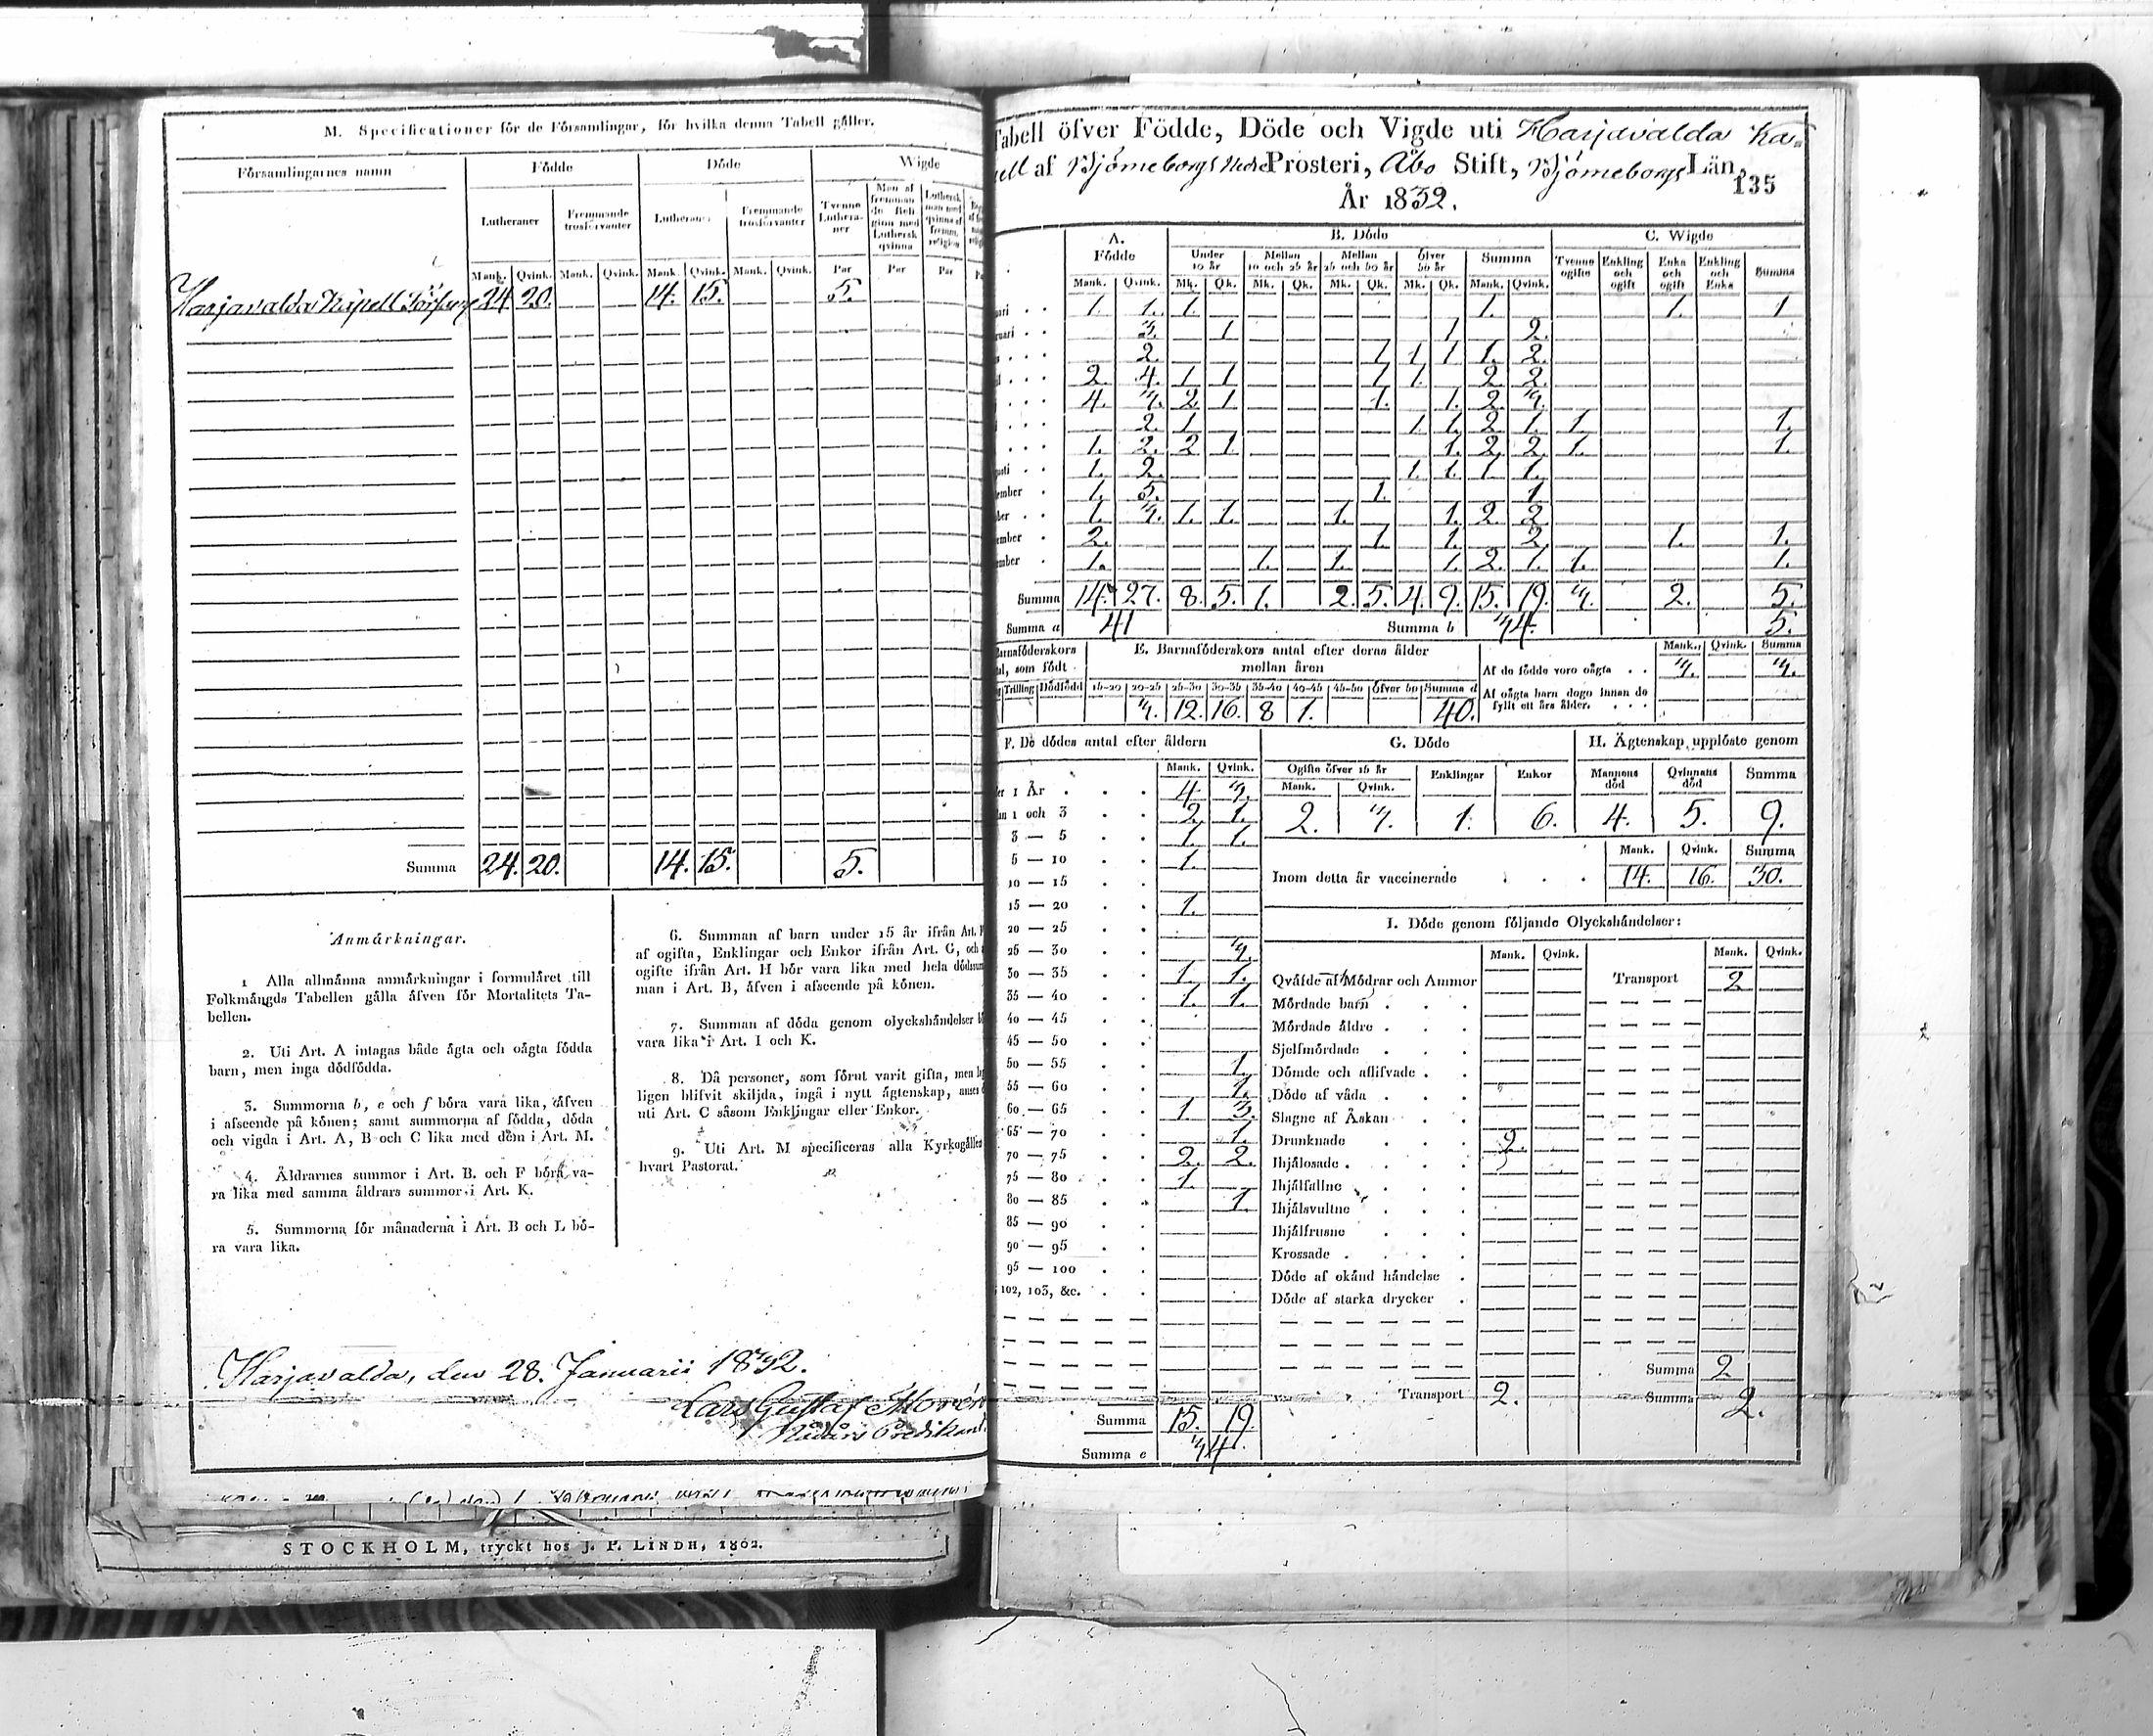 M. Specificationer för de Församlingar, för hvilka denna Tabell gäller.
Församlingarnes namn Födde Döde Wigde
Lutheraner Fremmande trosförvanter Lutheraner Fremmande trosförvanter Tvenne Lutheraner Men af fremmande Religion med Luthersk qvinna Luthersk man med qvinna af fremm. religion
Mank. Qvink. Mank. Qvink. Mank. Qvink. Mank. Qvink. Par Par Par
Harjavalda Kapell 24. 20. 14. 15. 5.
Summa 24. 20. 14. 15. 5.
Anmärkningar.
1 Alla allmänna anmärkningar i formuläret till
Folkmängds Tabellen gälla äfven för Mortalitets Ta-
bellen.
2. Uti Art. A intagas både ägta och oägta födda
barn, men inga dödfödda.
3. Summorna b, e och f böra vara lika, äfven
i afseende på könen; samt summorna af födda, döda
och vigda i Art. A, B och C lika med dem i Art. M.
4. Åldrarnes summor i Art. B. och F böra va-
ra lika med samma åldrars summor i Art. K.
5. Summorna för månaderna i Art. B och L bö-
ra vara lika.
6. Summan af barn under 15 år ifrån Art.
af ogifta, Enklingar och Enkor ifrån Art. G, och
ogifte ifrån Art. H bör vara lika med hela
man i Art. B, äfven i afseende på könen.
7. Summan af döda genom olyckshändelser
vara lika i Art. I och K.
8. Då personer, som förut varit gifta, men
ligen blifvit skiljda, ingå i nytt ägtenskap, anses
uti Art. C såsom Enklingar eller Enkor.
9. Uti Art. M specificeras alla
hvart Pastorat.
Harjavalda, den 28. Januarii 1832.
Lars Gustaf
Predikant
STOCKHOLM, tryckt hos J. P. LINDH, 1802.
Tabell öfver Födde, Döde och Vigde uti Harjavalda Ka-
pell af Björneborgs Nedre Prosteri, Åbo Stift, Björneborgs Län,
135
År 1832.
A. Födde B. Döde C. Wigde
Under 10 år Mellan 10 och 25 år Mellan 25 och 50 år öfver 50 år Summa Tvenne ogifte Enkling och ogift Enka och ogift Enkling och Enka Summa
Mank. Qvink. Mk. Qk. Mk. Qk. Mk. Qk. Mk. Qk. Mank. Qvink.
1. 1. 1. 1. 1. 1
3. 1 1 2.
2. 1 1 1 1. 2.
2. 4. 1 1 1 1. 2 2.
4. 3. 2 1 1. 1. 2 3.
2. 1 1. 1. 2 1. 1. 1.
1. 2. 2 1. 1. 2. 2. 1. 1.
1. 2. 1. 1. 1 1.
1. 5. 1. 1
1. 3. 1. 1. 1. 1. 2. 2
2. 1. 1. 2. 1. 1.
1. 1. 1. 1. 2. 1. 1. 1.
Summa 14. 27. 8. 5. 1. 2. 5. 4. 9. 15. 19. 3. 2. 5.
Summa a 41 Summa b 34. 5.
E. Barnaföderskors antal efter deras ålder
mellan åren
Trilling Dödfödd 15-20 20-25 25-30 30-35 35-40 40-45 45-50 öfver 50 Summa d
3. 12. 16. 8 1. 40.
Mank. Qvink. Summa
Af de födde voro oägta . . 3. 3.
Af oägta barn dogo innan de
fyllt ett års ålder. . . .
F. De dödes antal efter åldern
Mank. Qvink.
1 År . . . 4. 3.
1 och 3 . . 2. 1.
3 — 5 . . 1. 1.
5 — 10 . . 1.
10 — 15 . .
15 — 20 . . 1.
20 — 25 . .
25 — 30 . . 3.
30 — 35 . . 1. 1.
35 — 40 . . 1. 1.
40 — 45 . .
45 — 50 . .
50 — 55 . . 1.
55 — 60 . . 1.
60 — 65 . . 1 3.
65 — 70 . . 1.
70 — 75 . . 2. 2.
75 — 80 . . 1.
80 — 85 . . 1.
85 — 90 . .
90 — 95 . .
95 — 100 . .
102, 103, &c. . .
Summa 15. 19.
Summa e 34.
G. Döde
Ogifte öfver 15 år Enklingar Enkor
Mank. Qvink.
2. 3. 1. 6.
H. Ägtenskap upplöste genom
Mannens död Qvinnans död Summa
4. 5. 9.
Mank. Qvink. Summa
Inom detta år vaccinerade . . . 14. 16. 30.
I. Döde genom följande Olyckshändelser:
Mank. Qvink. Mank. Qvink.
Qväfde af Mödrar och Ammor Transport 2
Mördade barn . . .
Mördade äldre . . .
Sjelfmördade . .
Dömde och aflifvade . .
Döde af våda . . .
Slagne af Åskan . .
Drunknade . . . 2.
Ihjälosade . . . .
Ihjälfallne . . .
Ihjälsvultne . . .
Ihjälfrusne . . .
Krossade . . . .
Döde af okänd händelse .
Döde af starka drycker .
Summa 2
Transport 2. Summa 2.